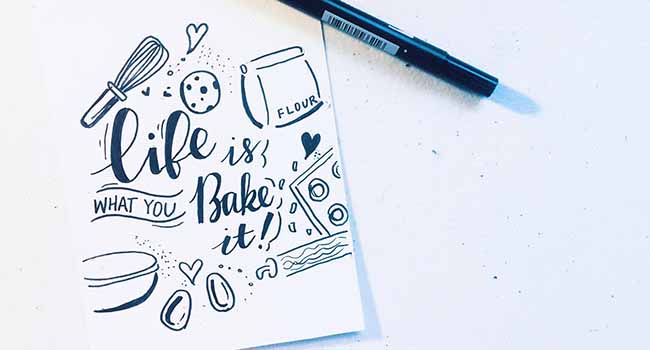 FLOUR
life is
WHAT YOU Bake
it!